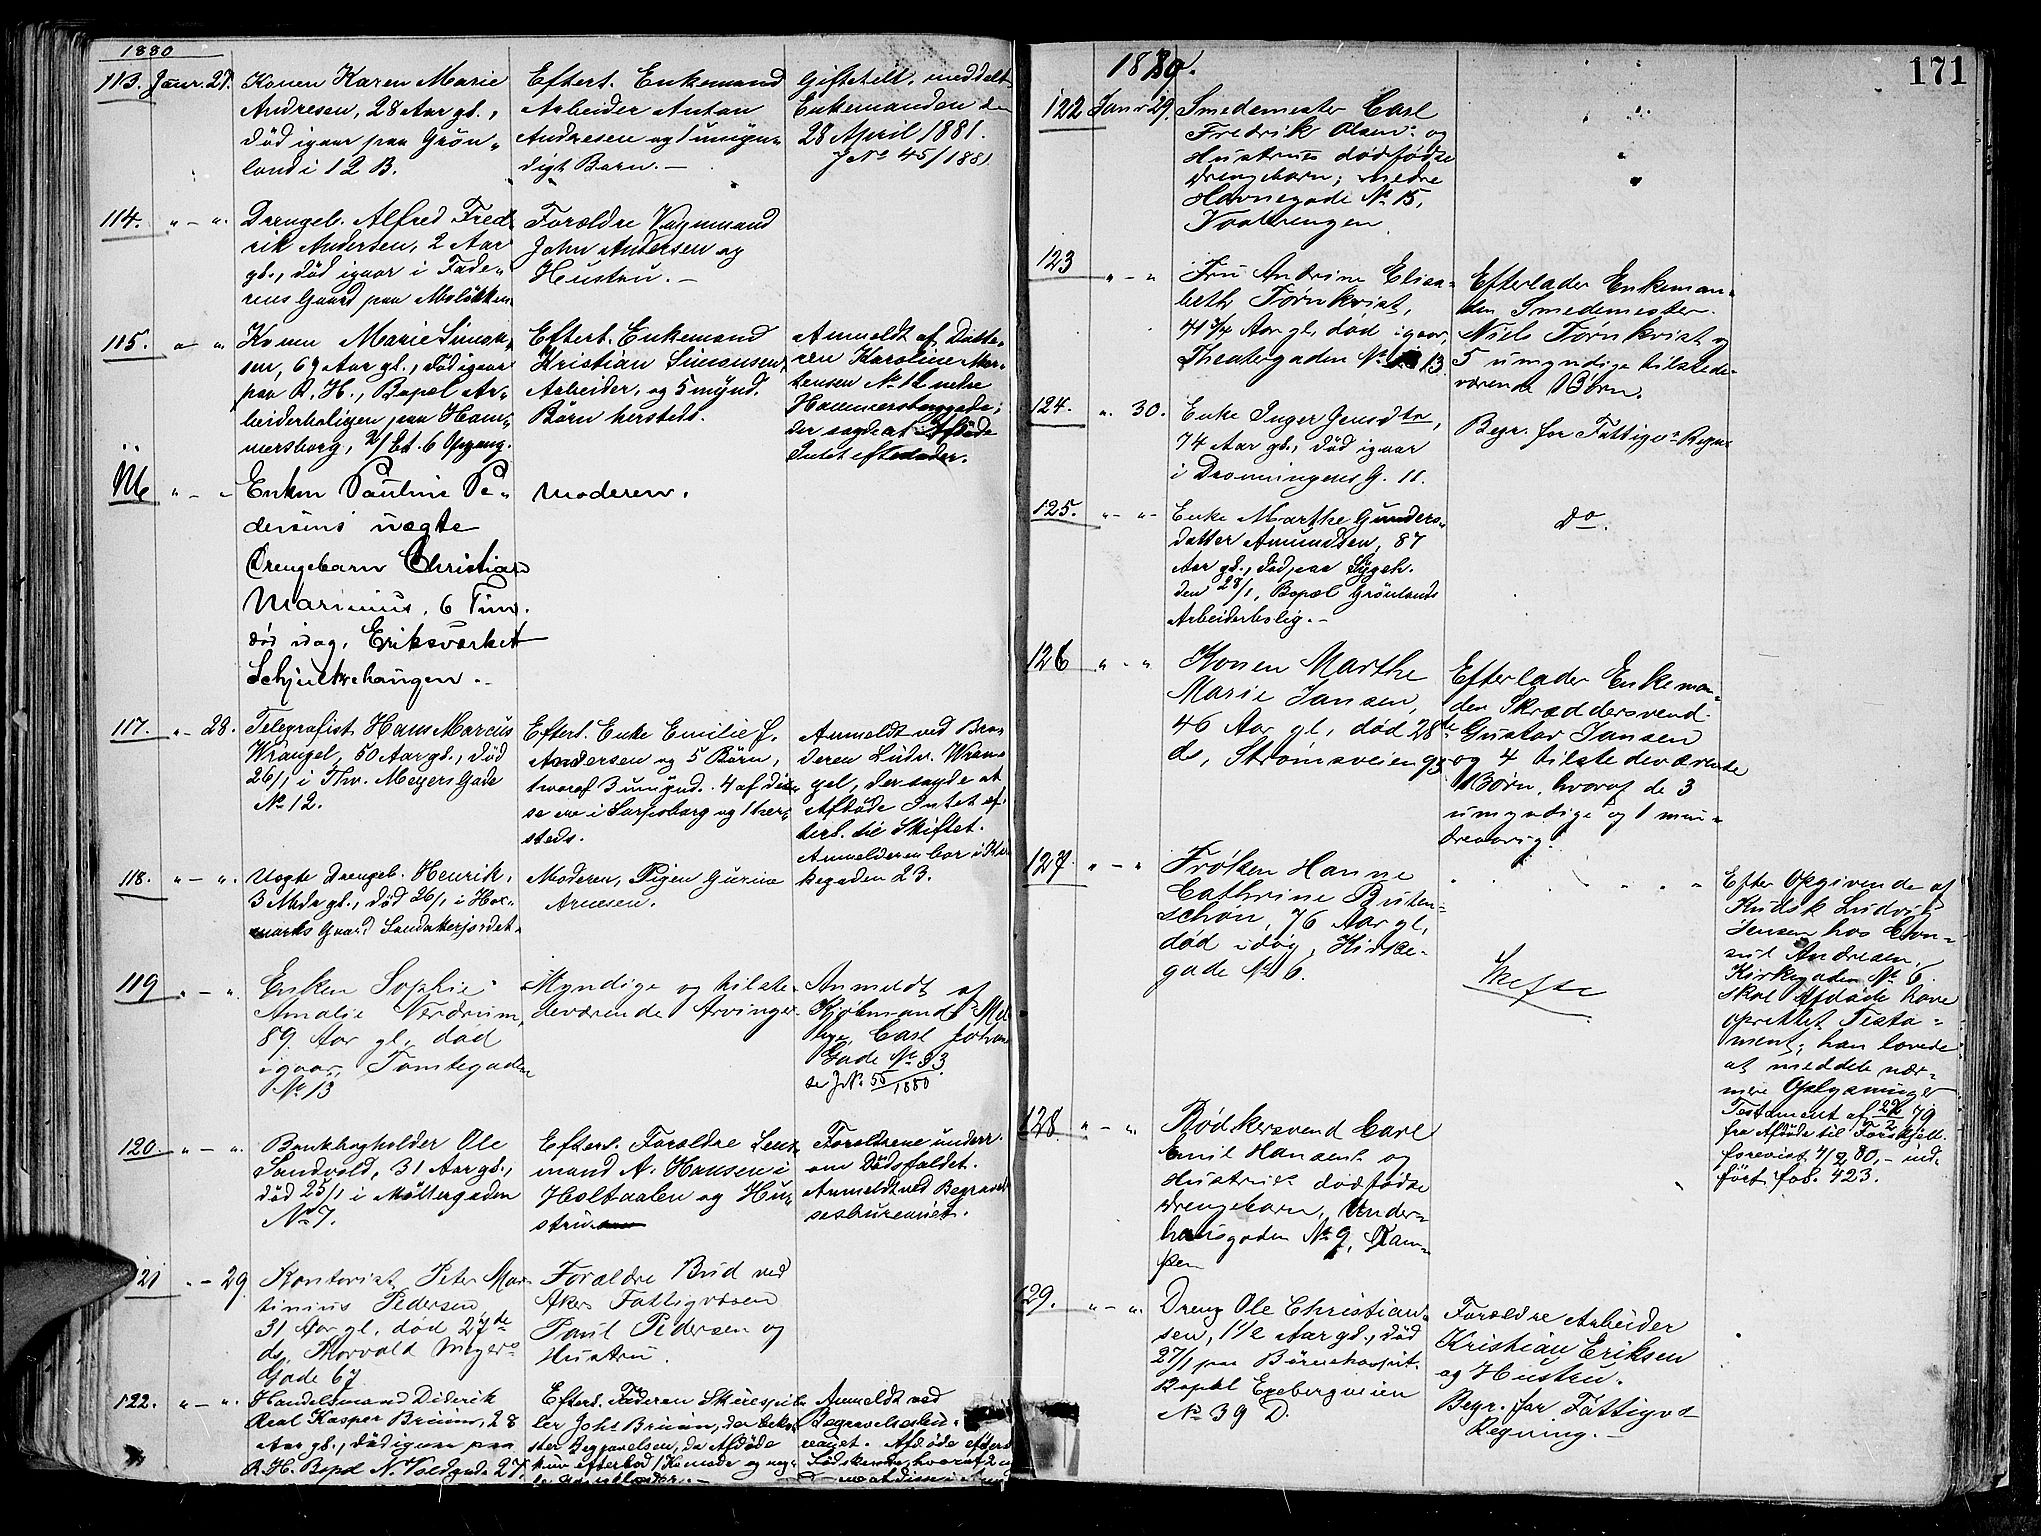 1880
113. Janr. 27.
Konen Karen Marie
Andresen, 28 Aar gl.,
død igaar paa Grøn-
land i 12 B.
Efterl. Enkemand
Arbeider Anton
Andresen og 1 umyn-
digt Barn.-
Giftetilt. meddelt
Enkemanden den
28 April 1881.
J No 45/1881
114. " - "
Drengeb. Alfred Fred-
rik Andersen, 2 Aar
gl., død igaar i Fade-
rens Gaard paa
Forældre Vognmand
John Andersen og
Hustru.-
115. " - "
Konen Marie Simon-
sen, 67 Aar gl., død igaar
paa R. H., Bopæl Ar-
beiderboligen paa Ham-
mersborg, 2/Et. 6 Opgang.
Efterl. Enkemand
Kristian Simonsen,
Arbeider, og 5 mynd.
Børn hersteds.
Anmeldt af Datte-
ren Karoline Mor-
tensen No 12 nedre
Hammersborggade;
der sagde at Afdøde
Intet efterlader.
116 " - "
Enken Pauline Pe-
dersens uægte
Drengebarn Christian
Marinius, 6 Tim.
død idag, Eriksværket
Moderen.
117. " - 28.
Telegrafist Hans Marcus
Wrangel, 50 Aar gl., død
26/1 i Thv. Meyers Gade
No 12.
Efterl. Enke Emilie f.
Andersen og 5 Børn,
hvoraf 3 umynd. 4 af dis-
se ere i Sarpsborg og 1 her-
steds.
Anmeldt ved Bro-
deren Ludv. Wran-
gel, der sagde at
Afdøde Intet ef-
terl. til Skiftet.
Anmelderen bor i Kir-
kegaden 23.
118. " - "
Uægte Drengeb. Henrik,
3 Mdr gl., død 26/1 i
Gaard Sandakerjordet.
Moderen, Pigen Gurine
Arnesen.
119 " - "
Enken Sophie
Amalie Verdrum,
89 Aar gl., død
igaar, Tomtegaden
No 13
Myndige og tilste-
deværende Arvinger.
Anmeldt af
Kjøbmand
Carl Johans
Gade No 33.
se J No 55/1880
120. " - "
Bankbogholder Ole
Sandvold, 31 Aar gl.,
død 25/1 i Møllergaden
No 7.
Efterl. Forældre Lens-
mand A. Hansen i
Holtaalen og Hu-
stru
Forældrene underr.
om Dødsfaldet.
Anmeldt ved Begravel-
sesbureauet.
121 " - 29.
Kontorist Peter Mar-
tinius Pedersen,
31 Aar gl., død 27de
ds, Thorvald Meyers
Gade 67
Forældre Bud ved
Akers Fattigvæsen
Paul Pedersen og
Hustru.
122. " - "
Handelsmand Diderik
Real Kasper Bruun, 28
Aar gl., død igaar paa
R. H. Bopæl N. Voldgade 27.
Efterl. Faderen Skuespil-
ler Johs Bruun, der beko-
ster Begravelsen, da Afdøde
kun efterlod 1 Komode og nog-
le
Anmeldt ved
Begravelsesbu-
reauet. Afdøde efterl.
Sødskende, hvoraf 2
1880.
171
122 Janr 29.
Smedemester Carl
Fredrik Olsens og
Hustrues dødfødte
Drengebarn, nedre
Havnegade No 15,
Vaalerengen.
123 " - "
Fru Andrine Elisa-
beth Tørnkvist,
41 3/4 Aar gl, død igaar,
Theatergaden No 13
Efterlader Enkeman-
den Smedemester
Niels Tørnkvist og
5 umyndige tilstede-
værende Børn.
124. " 30.
Enke Inger Jensdtr,
74 Aar gl., død igaar
i Dronningens G. 11.
Begr. for Fattigv. Regn.
125. " - "
Enke Marthe Gunders-
datter Amundsen, 87
Aar gl., død paa Sygeh.
den 28/1, Bopæl Grønlands
Arbeiderbolig.-
Do.
126 " - "
Konen Marthe
Marie Jansen,
46 Aar gl, død 28de
ds, Strømsveien 93
Efterlader Enkeman-
den Skræddersvend
Gustav Jansen
og 4 tilstedeværende
Børn, hvoraf de 3
umyndige og 1 min-
dreaarig.
127. " - "
Frøken Hanne
Cathrine Buten-
schøn, 76 Aar gl,
død idag, Kirke-
gade No 6.
Skifte
Efter Opgivende af
Kudsk Ludvig
Jensen hos Con-
sul Andresen,
Kirkegaden No 6.
skal Afdøde have
oprettet Testa-
ment; han lovede
at meddele nær-
mere Oplysninger
Testament af 22/2 79
fra Afdøde til Forskjell.
forevist 7/2 80, - ind-
ført fol. 423.
128. " - "
Bødkersvend Carl
Emil Hansens og
Hustrus dødfødte
Drengebarn, Under-
hausgaden No 9, Kam-
pen
129. " - "
Dreng Ole Christian-
sen, 1 1/2 Aar gl., død
27/1 paa Børnehospit.
Bopæl Ekebergveien
No 39 D.
Forældre Arbeider
Kristian Eriksen
og Hustru.
Begr. for Fattigv.
Regning.-